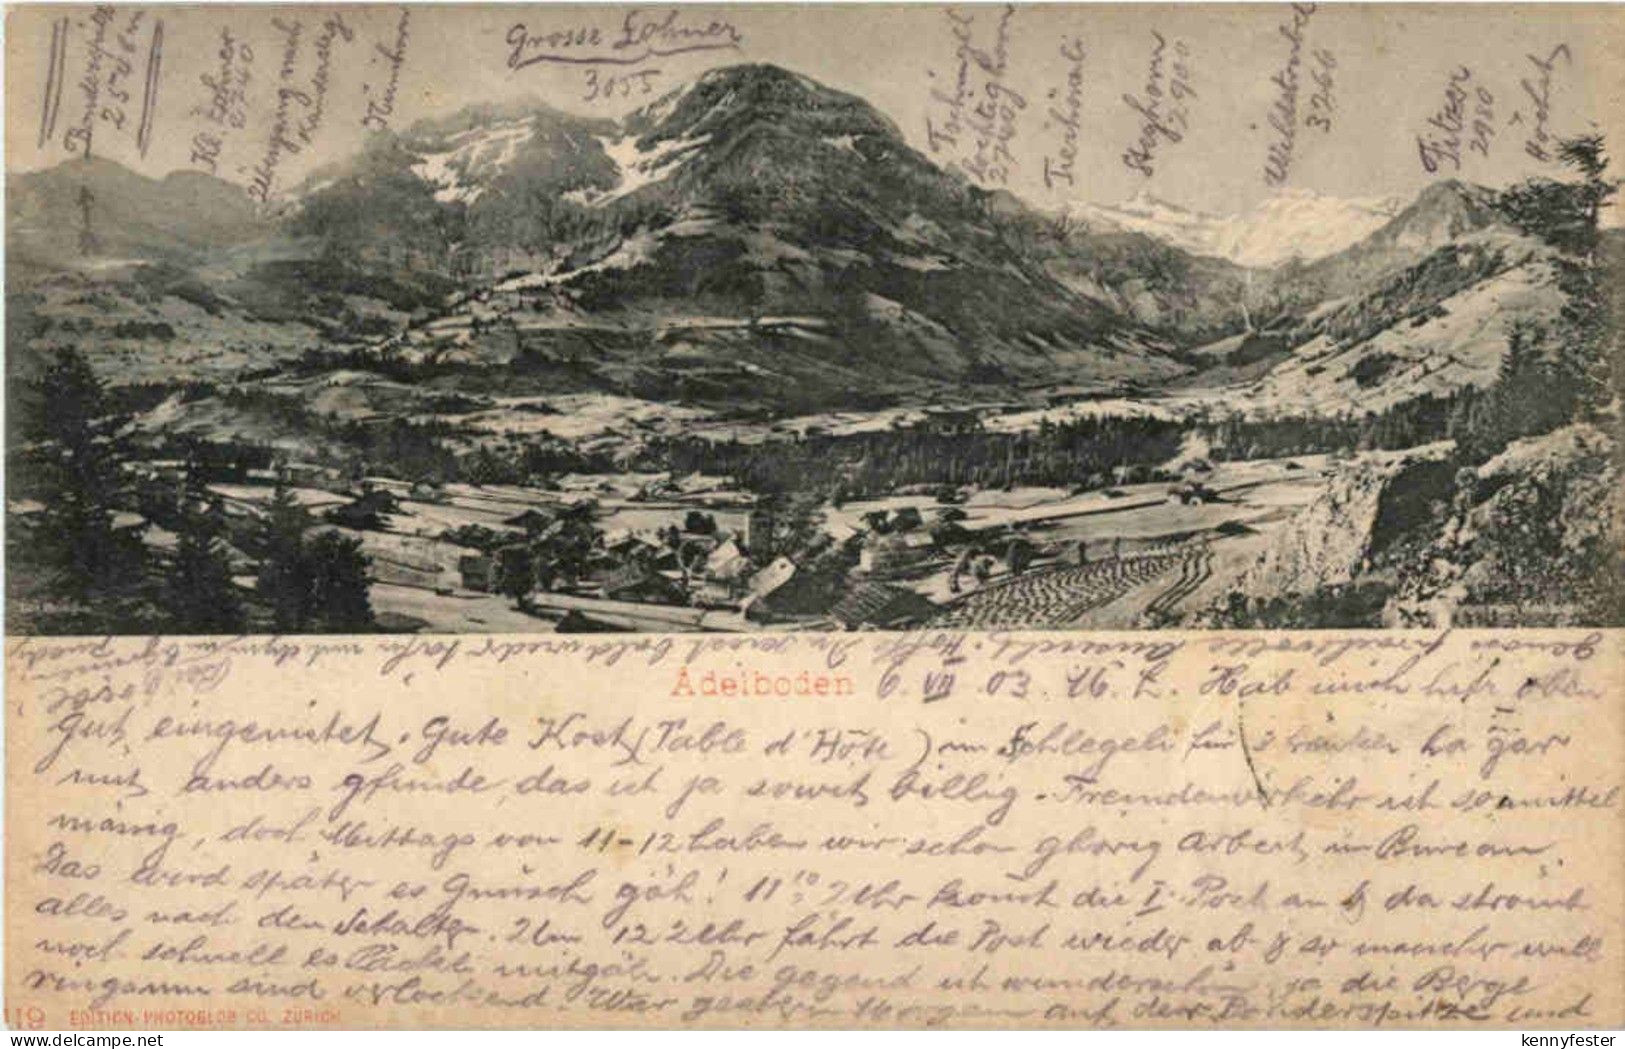 Bonderspitz
2546 m
Kl. Lohner
2740
Übergang nach
Kandersteg
Nünihorn
Grosse Lohner
3055
Tschingel
lochtighorn
2740
Steghorn
2900
Wildstrubel
3266
Fitzer
2980
Höchst
Adelboden 6. VII. 03. Hab mich hier oben
gut eingenistet. Gute Kost (Table d'Hôte) im Schlegeli für
nit anders gfunde, das ich ja soweit billig. Fremdenverkehr ist so mittel
mässig, doch Mittags von 11-12 haben wir schon ghörig Arbeit im Bureau.
Das wird später es Gnusch gäh! 11 10 Uhr kommt die I. Post an & da strömt
alles nach dem Schalter. Um 12 Uhr fährt die Post wieder ab & so mancher will
noch schnell es Päckli mitgäh. Die gegend ist wunderschön, ja die Berge
ringsum sind verlockend War gestern Morgen auf der Bonderspitze und
119 EDITION PHOTOGLOB CO. ZÜRICH
kennyfester